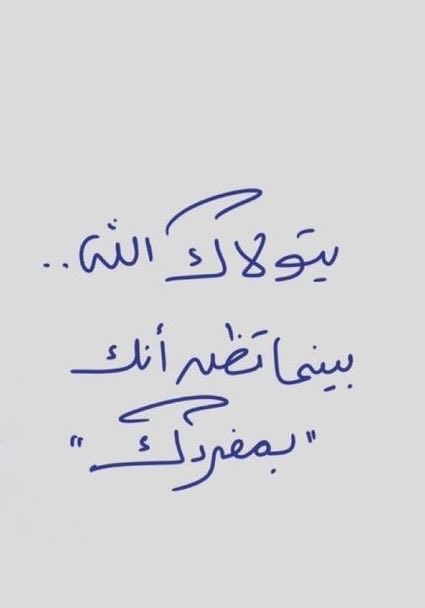 يتولاك الله..
بينما تظن أنك
"بمفردك"